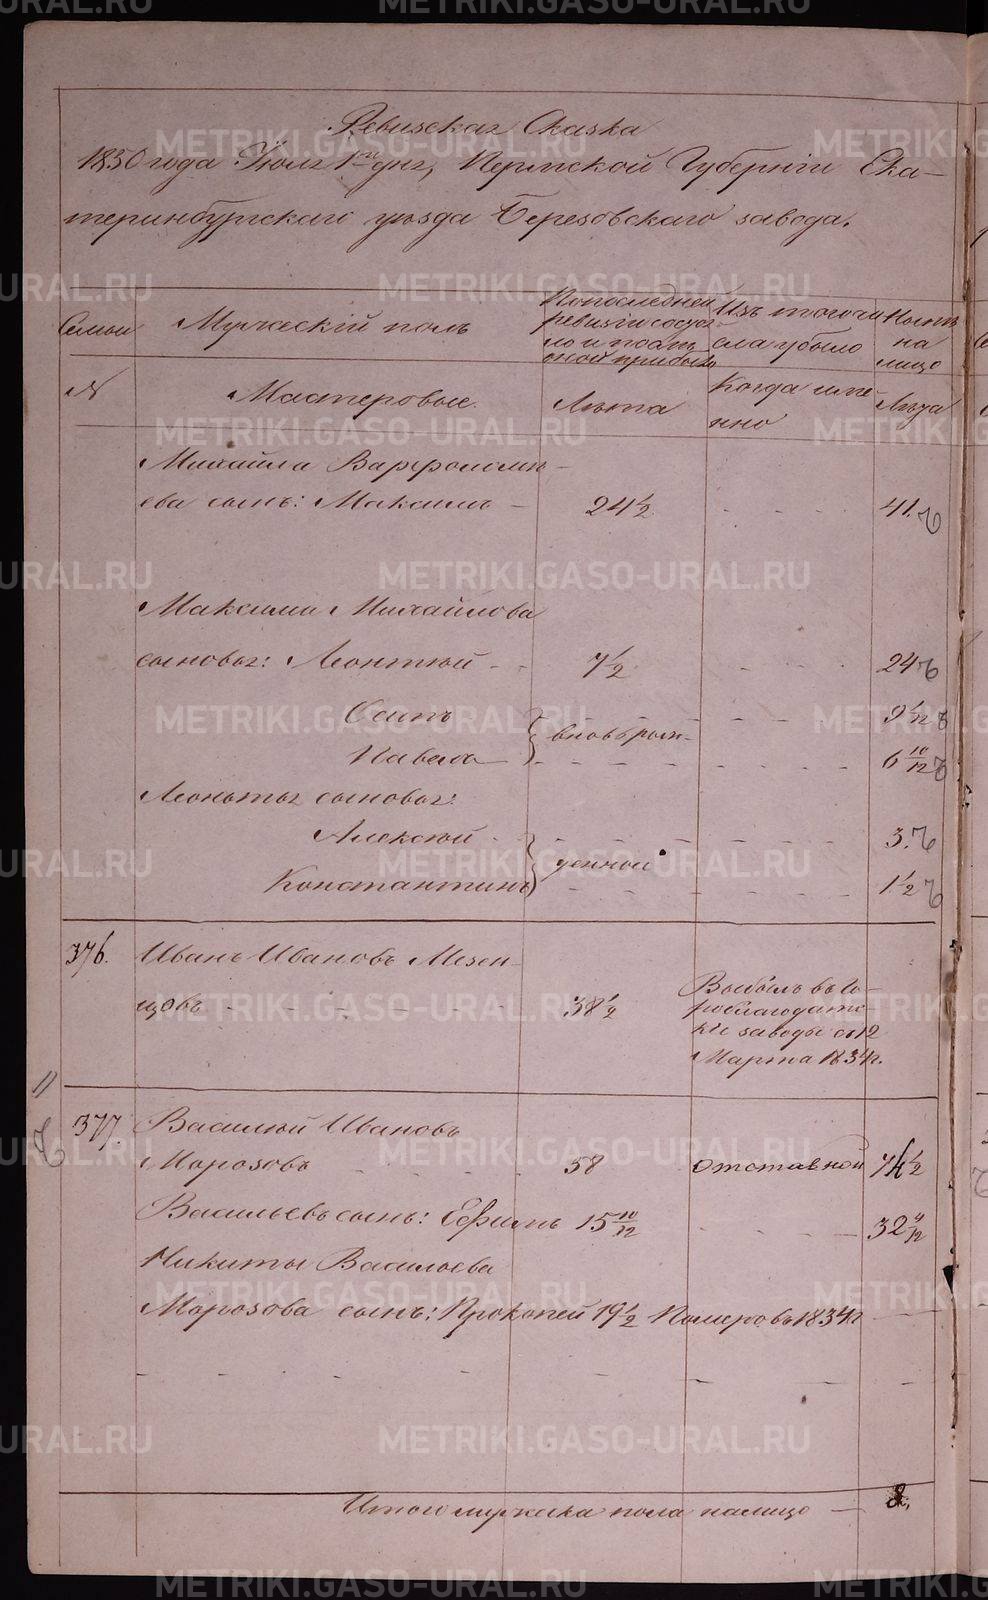 Ревизская Сказка
1850 года Июля 1го дня, Пермской Губернiи Ека-
теринбургскаго уѣзда Березовскаго завода.
Семьи
Мужескiй полъ
По последней
ревизiи состоя-
ло и послѣ
оной прибыло
Изъ того чи
сла убыло
Нынѣ
на
лицо
№
Мастеровые.
Лѣта
Когда име-
нно
Лѣта
Михайла Варфоломѣ-
ева сынъ: Максимъ - 24 1/2 41.
Максима Михайлова
сыновья: Леонтiй - 7 1/2 24
Осипъ 9 1/12
вновь рож-
Павелъ 6 10/12
Леонтья сыновья:
Алексѣй 3.
денной
Константинъ 1 1/2
376. Иванъ Ивановъ Мезен-
цовъ 38 1/2
Выбылъ въ Го-
роблагодатс-
кiе заводы съ 12
Марта 1834г.
377. Василiй Ивановъ
Морозовъ 58 отставной 74 1/2
Васильевъ сынъ: Ефимъ 15 10/12 32 4/12
Никиты Васильева
Морозова сынъ: Прокопей 19 1/2 Померъ въ 1834г
Итого мужеска пола налицо — 8.
METRIKI.GASO-URAL.RU